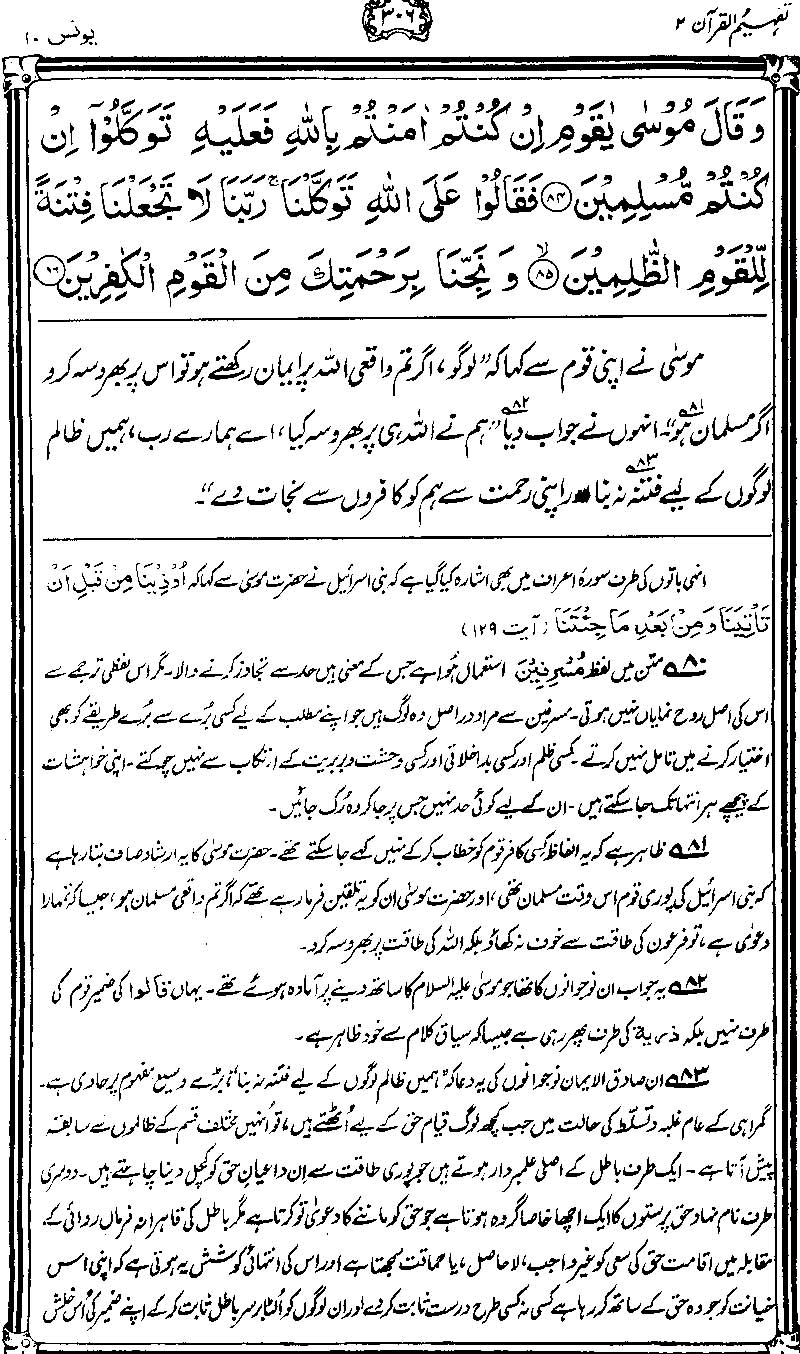 تفہیم القرآن ۲
۳۰۶
یونس ۱۰
وَقَالَ مُوْسٰى يٰقَوْمِ اِنْ كُنْتُمْ اٰمَنْتُمْ بِاللّٰهِ فَعَلَيْهِ تَوَكَّلُوْۤا اِنْ
كُنْتُمْ مُّسْلِمِيْنَ ﴿۸۴﴾ فَقَالُوْا عَلَى اللّٰهِ تَوَكَّلْنَا ۚ رَبَّنَا لَا تَجْعَلْنَا فِتْنَةً
لِّلْقَوْمِ الظّٰلِمِيْنَ ﴿۸۵﴾ۙ وَ نَجِّنَا بِرَحْمَتِكَ مِنَ الْقَوْمِ الْكٰفِرِيْنَ ﴿۸۶﴾
موسیٰ نے اپنی قوم سے کہا کہ ”لوگو، اگر تم واقعی اللہ پر ایمان رکھتے ہو تو اس پر بھروسہ کرو
اگر مسلمان ہو۸۱“۔ انہوں نے جواب دیا۸۲ ”ہم نے اللہ ہی پر بھروسہ کیا، اے ہمارے رب، ہمیں ظالم
لوگوں کے لیے فتنہ نہ بنا۸۳ اپنی رحمت سے ہم کو کافروں سے نجات دے“۔
انہی باتوں کی طرف سورۂ اعراف میں بھی اشارہ کیا گیا ہے کہ بنی اسرائیل نے حضرت موسیٰ سے کہا کہ اُوْذِيْنَا مِنْ قَبْلِ اَنْ
تَاْتِيَنَا وَمِنْ بَعْدِ مَا جِئْتَنَا (آیت ۱۲۹)
۸۰ متن میں لفظ مُسْرِفِيْنَ استعمال ہُوا ہے جس کے معنی ہیں حد سے تجاوز کرنے والا۔ مگر اس لفظی ترجمے سے
اس کی اصل روح نمایاں نہیں ہوتی۔ مسرفین سے مراد دراصل وہ لوگ ہیں جو اپنے مطلب کے لیے کسی بُرے سے بُرے طریقے کو بھی
اختیار کرنے میں تامل نہیں کرتے۔ کسی ظلم اور کسی بداخلاقی اور کسی وحشت و بربریت کے ارتکاب سے نہیں چوکتے۔ اپنی خواہشات
کے پیچھے ہر انتہا تک جا سکتے ہیں۔ ان کے لیے کوئی حد نہیں جس پر جا کر وہ رُک جائیں۔
۸۱ ظاہر ہے کہ یہ الفاظ کسی کافر قوم کو خطاب کر کے نہیں کہے جا سکتے تھے۔ حضرت موسیٰ کا یہ ارشاد صاف بتا رہا ہے
کہ بنی اسرائیل کی پوری قوم اس وقت مسلمان تھی، اور حضرت موسیٰ ان کو یہ تلقین فرما رہے تھے کہ اگر تم واقعی مسلمان ہو، جیسا کہ تمہارا
دعویٰ ہے، تو فرعون کی طاقت سے خوف نہ کھاؤ بلکہ اللہ کی طاقت پر بھروسہ کرو۔
۸۲ یہ جواب ان نوجوانوں کا تھا جو موسیٰ علیہ السلام کا ساتھ دینے پر آمادہ ہوئے تھے۔ یہاں قالوا کی ضمیر قوم کی
طرف نہیں بلکہ ذریۃ کی طرف پھر رہی ہے جیسا کہ سیاق کلام سے خود ظاہر ہے۔
۸۳ ان صادق الایمان نوجوانوں کی یہ دعا کہ ”ہمیں ظالم لوگوں کے لیے فتنہ نہ بنا“ بڑے وسیع مفہوم پر حاوی ہے۔
گمراہی کے عام غلبہ و تسلّط کی حالت میں جب کچھ لوگ قیام حق کے لیے اُٹھتے ہیں، تو اُنہیں مختلف قسم کے ظالموں سے سابقہ
پیش آتا ہے۔ ایک طرف باطل کے اصلی علمبردار ہوتے ہیں جو پوری طاقت سے اِن داعیانِ حق کو کچل دینا چاہتے ہیں۔ دوسری
طرف نام نہاد حق پرستوں کا ایک اچھا خاصا گروہ ہوتا ہے جو حق کو ماننے کا دعویٰ تو کرتا ہے مگر باطل کی قاہرانہ فرماں روائی کے
مقابلہ میں اقامت حق کی سعی کو غیر واجب، لاحاصل، یا حماقت سمجھتا ہے اور اس کی انتہائی کوشش یہ ہوتی ہے کہ اپنی اس
خیانت کو جو وہ حق کے ساتھ کر رہا ہے کسی نہ کسی طرح درست ثابت کر دے اور ان لوگوں کو اُلٹا بر سر باطل ثابت کر کے اپنے ضمیر کی اُس خلش